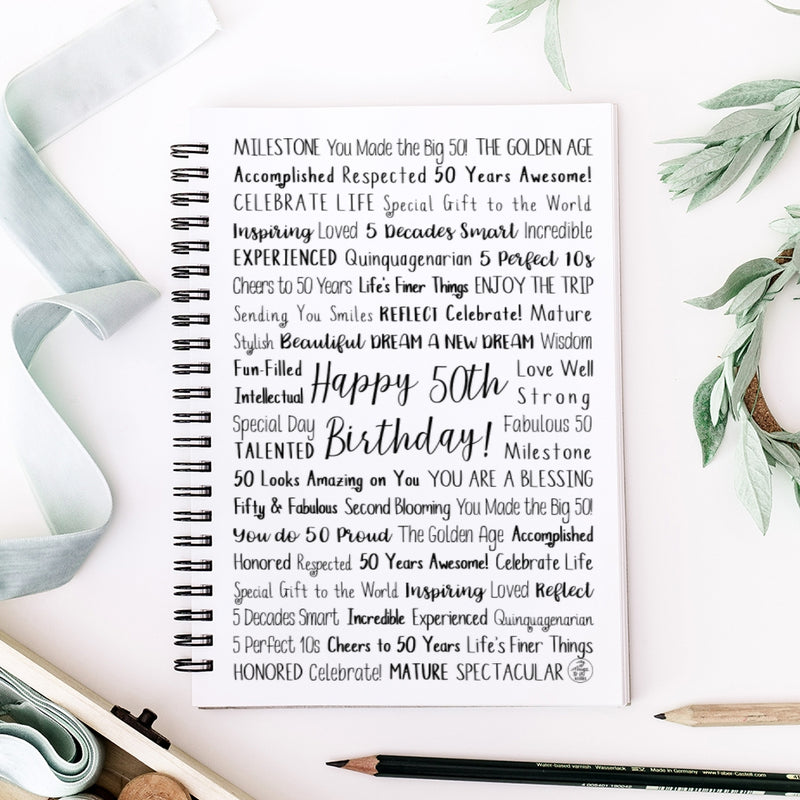 MILESTONE You Made the Big 50! THE GOLDEN AGE
Accomplished Respected 50 Years Awesome!
CELEBRATE LIFE Special Gift to the World
Inspiring Loved 5 Decades Smart Incredible
EXPERIENCED Quinquagenarian 5 Perfect 10s
Cheers to 50 Years Life's Finer Things ENJOY THE TRIP
Sending You Smiles REFLECT Celebrate! Mature
Stylish Beautiful DREAM A NEW DREAM Wisdom
Fun-Filled Love Well
Intellectual Happy 50th Strong
Special Day Fabulous 50
TALENTED Birthday! Milestone
50 Looks Amazing on You YOU ARE A BLESSING
Fifty & Fabulous Second Blooming You Made the Big 50!
You do 50 Proud The Golden Age Accomplished
Honored Respected 50 Years Awesome! Celebrate Life
Special Gift to the World Inspiring Loved Reflect
5 Decades Smart Incredible Experienced Quinquagenarian
5 Perfect 10s Cheers to 50 Years Life's Finer Things
HONORED Celebrate! MATURE SPECTACULAR
Water-based varnish Wasserlack Made in Germany www.Faber-Castell.com